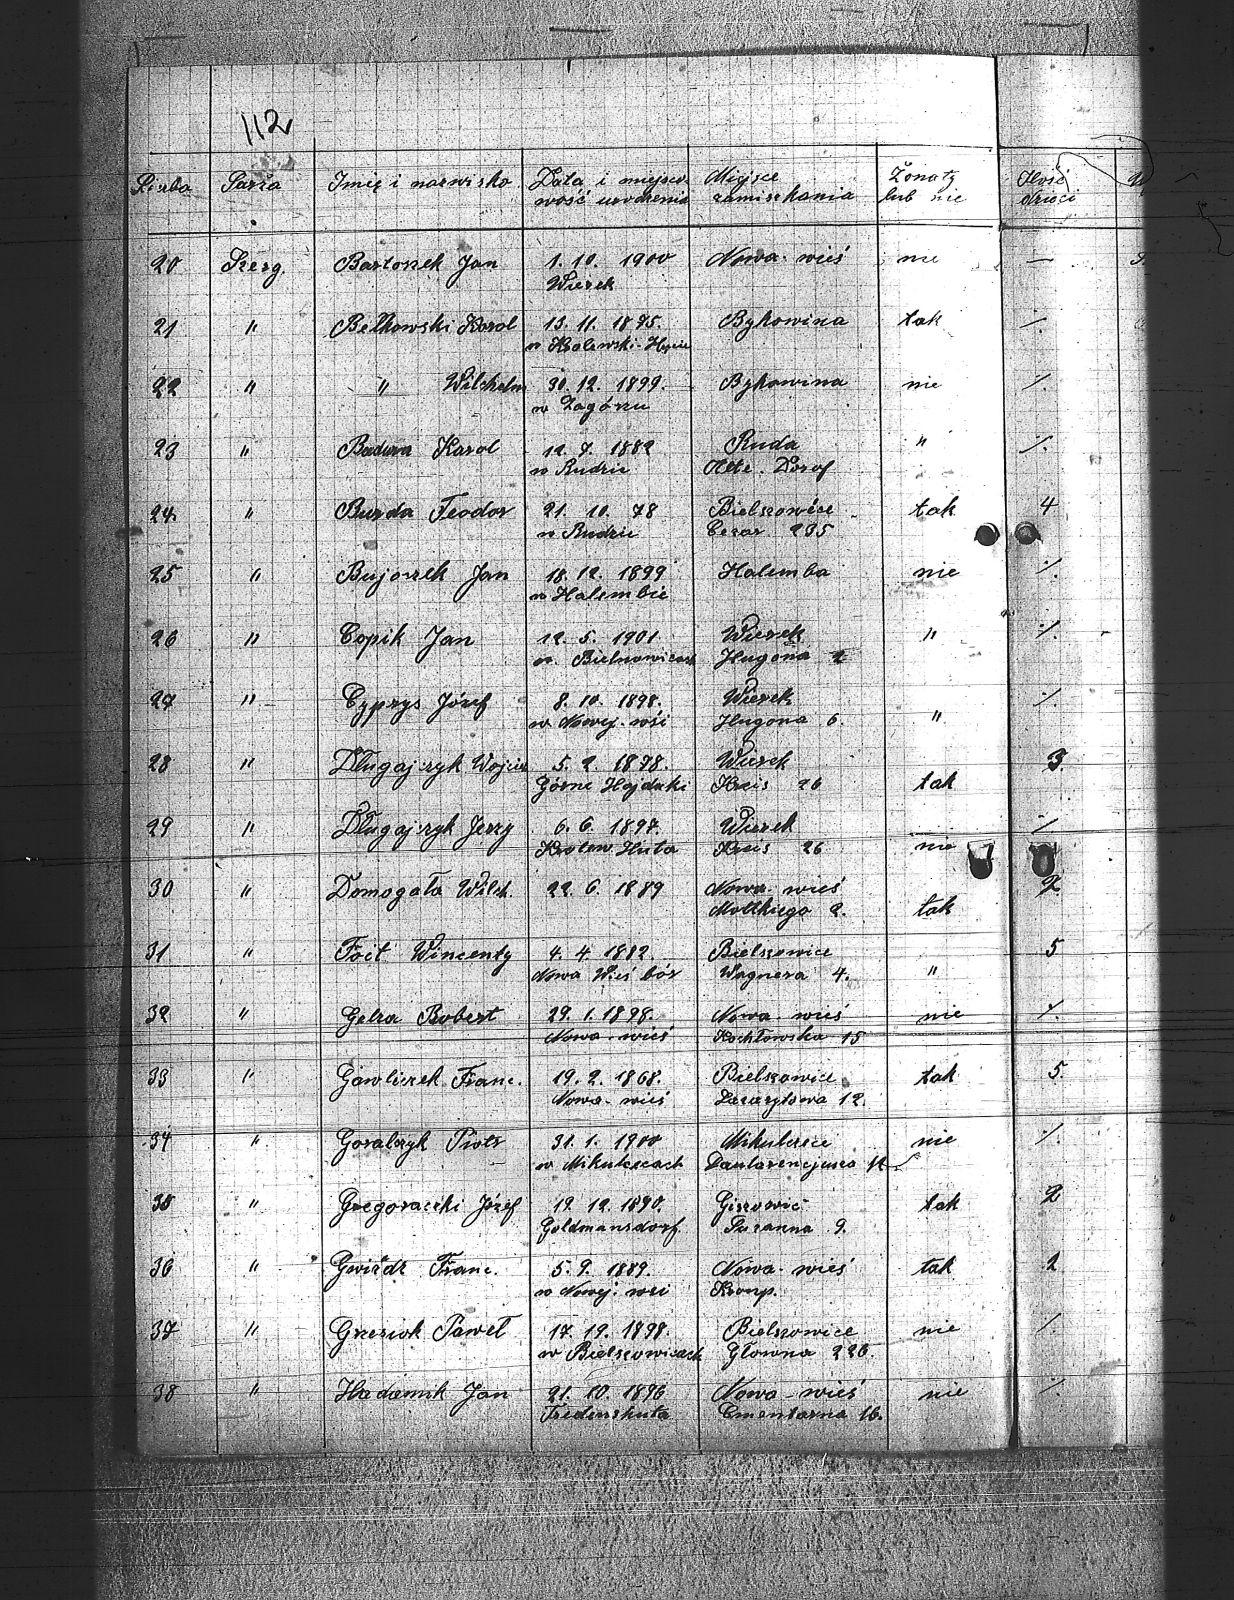 112
Liczba Szarża Imię i nazwisko Data i miejsco- Miejsce Żonaty Ilość
wość urodzenia zamieszkania lub nie dzieci
20 Szerg. Bartoszek Jan 1. 10. 1900 Nowa-wieś nie —
Wierek
21 " Bełkowski Karol 13. 11. 1875. Bykowina tak ·/.
w Krolewski-Hucie
22 " " Wilchelm 30. 12. 1899. Bykowina nie ·/.
w Zagórzu
23 " Badura Karol 12. 7. 1882 Ruda " ·/.
w Rudzie Alte. Dorof
24. " Burda Teodor 21. 10. 78 Bielszowice tak 4
w Rudzie Cezar 235
25 " Bujoszek Jan 18. 12. 1899 Halemba nie ·/.
w Halembie
26 " Copik Jan 12. 5. 1901 Wierek " ·/.
w. Hugona 2
27 " Cyprys Józef 8. 10. 1898. Wierek ·/.
w Nowej-wsi Hugona 6. "
28 " Długajczyk Wojcie 5. 2. 1878. Wierek 3.
Górne Hajduki Kreis 26 tak
29 " Długajczyk Jerzy 6. 6. 1897. Wierek ·/.
Krolew. Huta Kreis 26 nie
30 " Domogała Wilch. 22. 6. 1889 Nowa-wieś 2
Moltkiego 2. tak
31 " Foit Wincenty 4. 4 1882. Bielszowice 5
Nowa Wieś bór Wagnera 4. "
32 " Gelza Robert 29. 1. 1898. Nowa-wieś nie ·/.
Nowa-wieś Kochłowska 15
33 " Gawliczek Franc. 19. 2. 1868. Bielszowice tak 5.
Nowa-wieś 12.
34 " Goralczyk Piotr 31. 1. 1900 Mikulczce nie ·/.
w Mikulczcach
35 " Gregoraczki Józef 19. 12. 1890. Giszowic tak 2
Goldmansdorf. Zuzanna 9.
36 " Gwiźdź Franc. 5. 9. 1889. Nowa-wieś tak 2
w Nowej-wsi Kronp.
37 " Grzesiok Paweł 17. 12. 1898. Bielszowice nie ·/.
w Bielszowicach Głowna 226.
38 " Hadamik Jan 21. 10. 1896 Nowa-wieś nie ·/.
Fridenshuta Cmentarna 16.